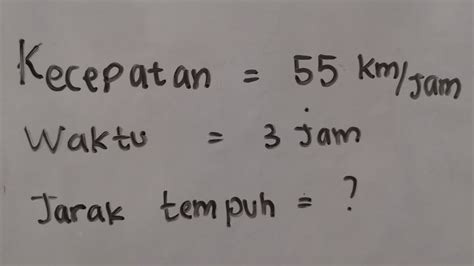 Kecepatan = 55 km/jam
Waktu = 3 jam
Jarak tempuh = ?